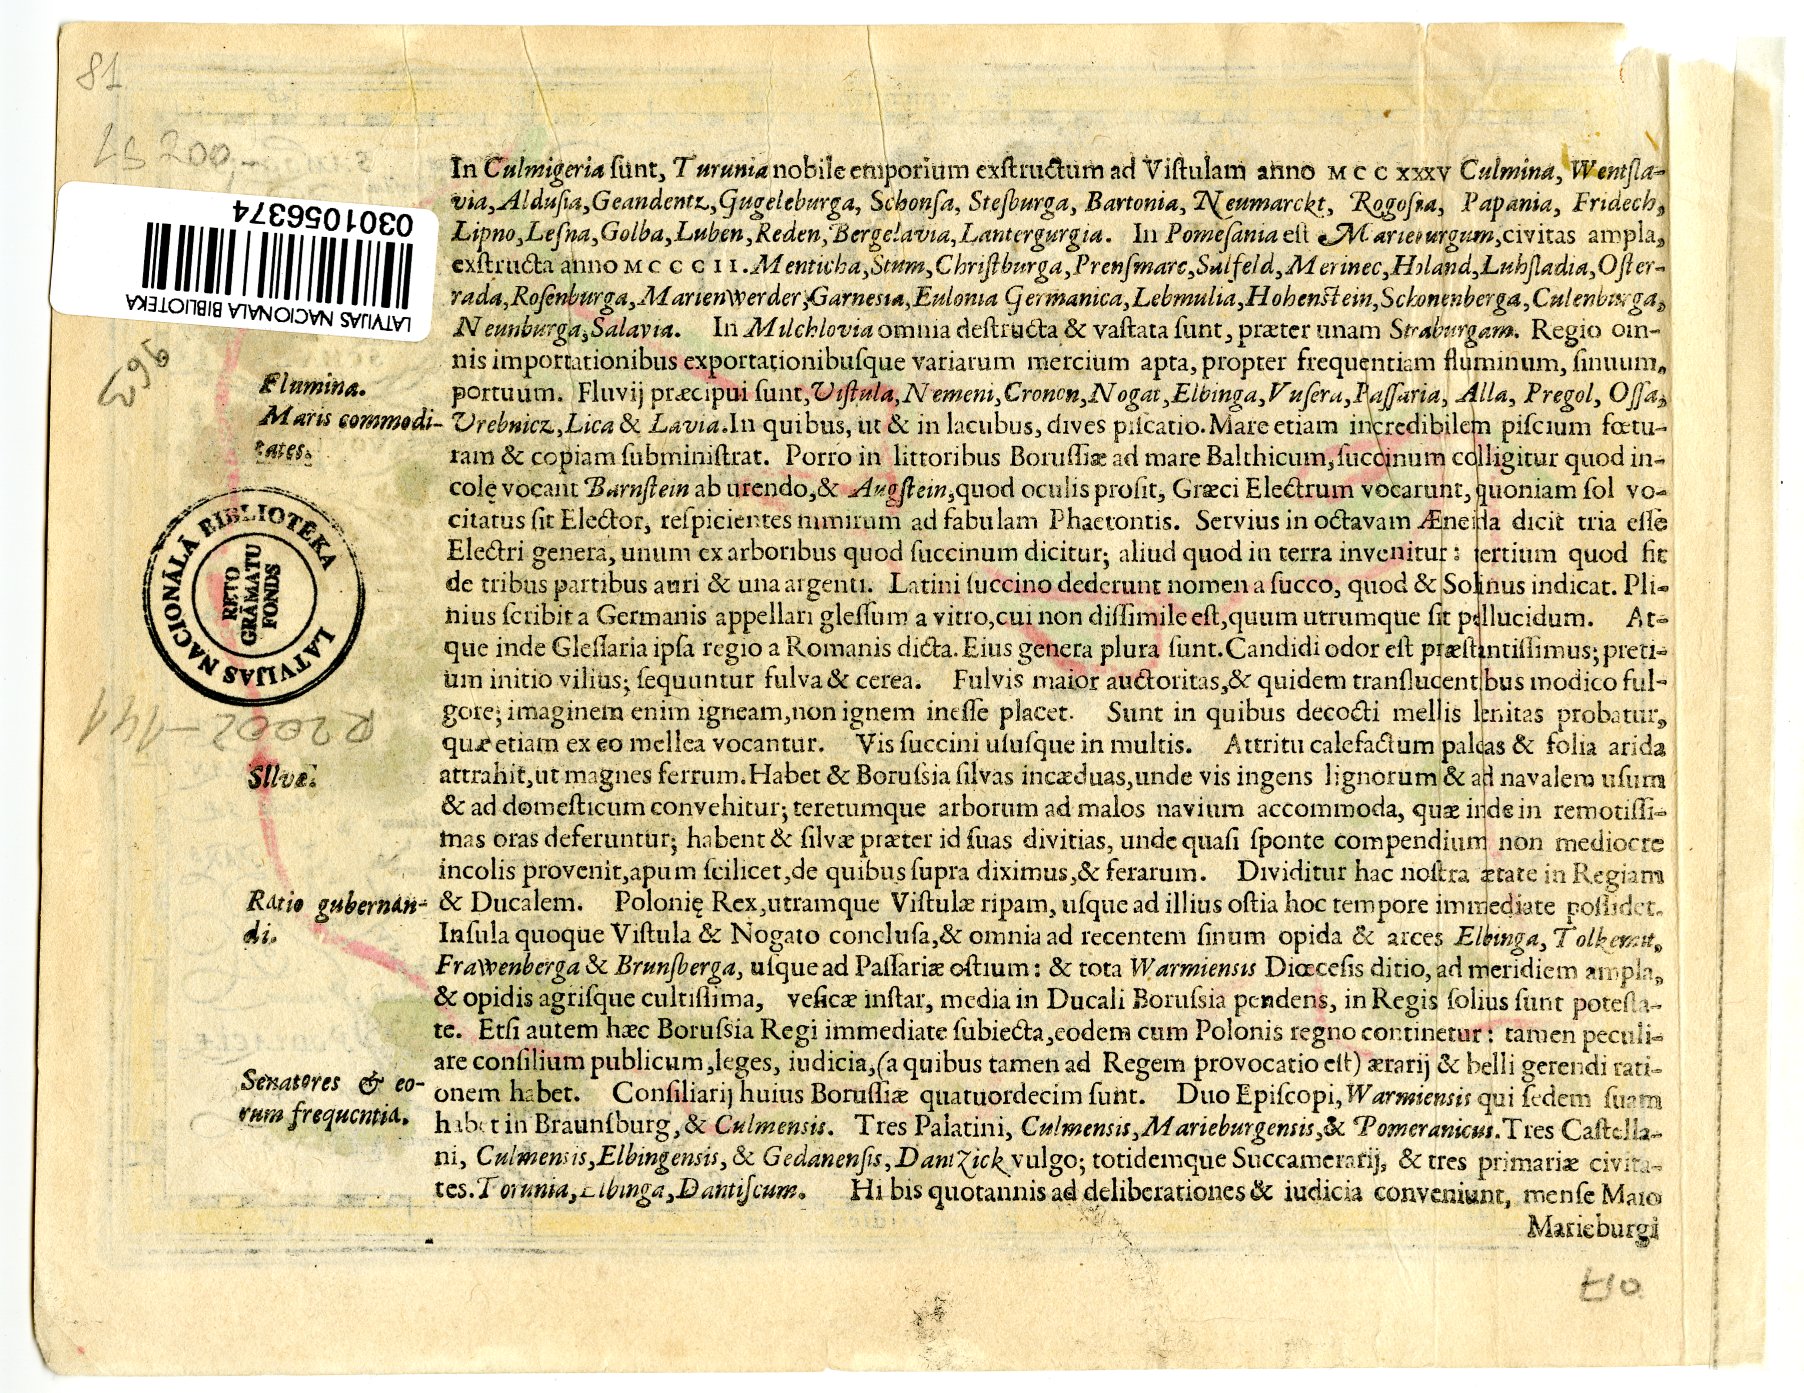 81
Ls 200,-
0301056374
LATVIJAS NACIONALA BIBLIOTEKA
In Culmigeria ſunt, Turunia nobile emporium exſtructum ad Viſtulam anno MCCXXXV Culmina, Wentſla-
via, Alduſia, Geandentz, Gugeleburga, Schonſa, Stesburga, Bartonia, Neumarckt, Rogoſna, Papania, Fridech,
Lipno, Leſna, Golba, Luben, Reden, Bergelavia, Lantergurgia. In Pomeſania eſt Marieburgum, civitas ampla,
exſtructa anno MCCCII. Menticha, Stum, Chriſtburga, Prenſmarc, Salfeld, Merinec, Holand, Luhſladia, Oſter-
rada, Roſenburga, Marienwerder, Garnesia, Eulonia Germanica, Lebmulia, Hohenſtein, Schonenberga, Culenburga,
Neunburga, Salavia. In Milchlovia omnia deſtructa & vaſtata ſunt, præter unam Straburgam. Regio om-
nis importationibus exportationibuſque variarum mercium apta, propter frequentiam fluminum, ſinuum,
Flumina.
portuum. Fluvij præcipui ſunt, Viſtula, Nemeni, Cronon, Nogat, Elbinga, Vuſera, Paſſaria, Alla, Pregol, Oſſa,
Maris commodi-
tates.
Vrebnicz, Lica & Lavia. In quibus, ut & in lacubus, dives piſcatio. Mare etiam incredibilem piſcium fœtu-
ram & copiam ſubminiſtrat. Porro in littoribus Boruſſiæ ad mare Balthicum, ſuccinum colligitur quod in-
colę vocant Barnſtein ab urendo, & Augſtein, quod oculis proſit, Græci Electrum vocarunt, quoniam ſol vo-
citatus ſit Elector, reſpicientes nimirum ad fabulam Phaetontis. Servius in octavam Æneida dicit tria eſſe
Electri genera, unum ex arboribus quod ſuccinum dicitur; aliud quod in terra invenitur: tertium quod fit
de tribus partibus auri & una argenti. Latini ſuccino dederunt nomen a ſucco, quod & Solinus indicat. Pli-
nius ſcribit a Germanis appellari gleſſum a vitro, cui non diſſimile eſt, quum utrumque ſit pellucidum. At-
que inde Gleſſaria ipſa regio a Romanis dicta. Eius genera plura ſunt. Candidi odor eſt præſtantiſſimus; preti-
um initio vilius; ſequuntur fulva & cerea. Fulvis maior auctoritas, & quidem tranſlucentibus modico ful-
gore; imaginem enim igneam, non ignem ineſſe placet. Sunt in quibus decocti mellis lenitas probatur,
quæ etiam ex eo mellea vocantur. Vis ſuccini uſuſque in multis. Attritu calefactum paleas & folia arida
LATVIJAS NACIONĀLĀ BIBLIOTĒKA
RETO
GRĀMATU
FONDS
R2002-141
Sllvæ.
attrahit, ut magnes ferrum. Habet & Boruſsia ſilvas incæduas, unde vis ingens lignorum & ad navalem uſum
& ad domeſticum convehitur; teretumque arborum ad malos navium accommoda, quæ inde in remotiſſi-
mas oras deferuntur; habent & ſilvæ præter id ſuas divitias, unde quaſi ſponte compendium non mediocre
incolis provenit, apum ſcilicet, de quibus ſupra diximus, & ferarum. Dividitur hac noſtra ætate in Regiam
Ratio gubernan-
di.
& Ducalem. Polonię Rex, utramque Viſtulæ ripam, uſque ad illius oſtia hoc tempore immediate poſſidet.
Inſula quoque Viſtula & Nogato concluſa, & omnia ad recentem ſinum opida & arces Elbinga, Tolkemit,
Frawenberga & Brunſberga, uſque ad Paſſariæ oſtium: & tota Warmiensis Diœceſis ditio, ad meridiem ampla,
& opidis agriſque cultiſſima, veſicæ inſtar, media in Ducali Boruſsia pendens, in Regis ſolius ſunt poteſta-
te. Etſi autem hæc Boruſsia Regi immediate ſubiecta, eodem cum Polonis regno continetur: tamen peculi-
are conſilium publicum, leges, iudicia, (a quibus tamen ad Regem provocatio eſt) ærarij & belli gerendi rati-
Senatores & eo-
rum frequentia.
onem habet. Conſiliarij huius Boruſſiæ quatuordecim ſunt. Duo Epiſcopi, Warmiensis qui ſedem ſuam
habet in Braunſburg, & Culmensis. Tres Palatini, Culmensis, Marieburgensis, & Pomeranicus. Tres Caſtella-
ni, Culmensis, Elbingensis, & Gedanenſis, Dantzick vulgo; totidemque Succamerarij, & tres primariæ civita-
tes. Torunia, Elbinga, Dantiſcum. Hi bis quotannis ad deliberationes & iudicia conveniunt, menſe Maio
Marieburgi